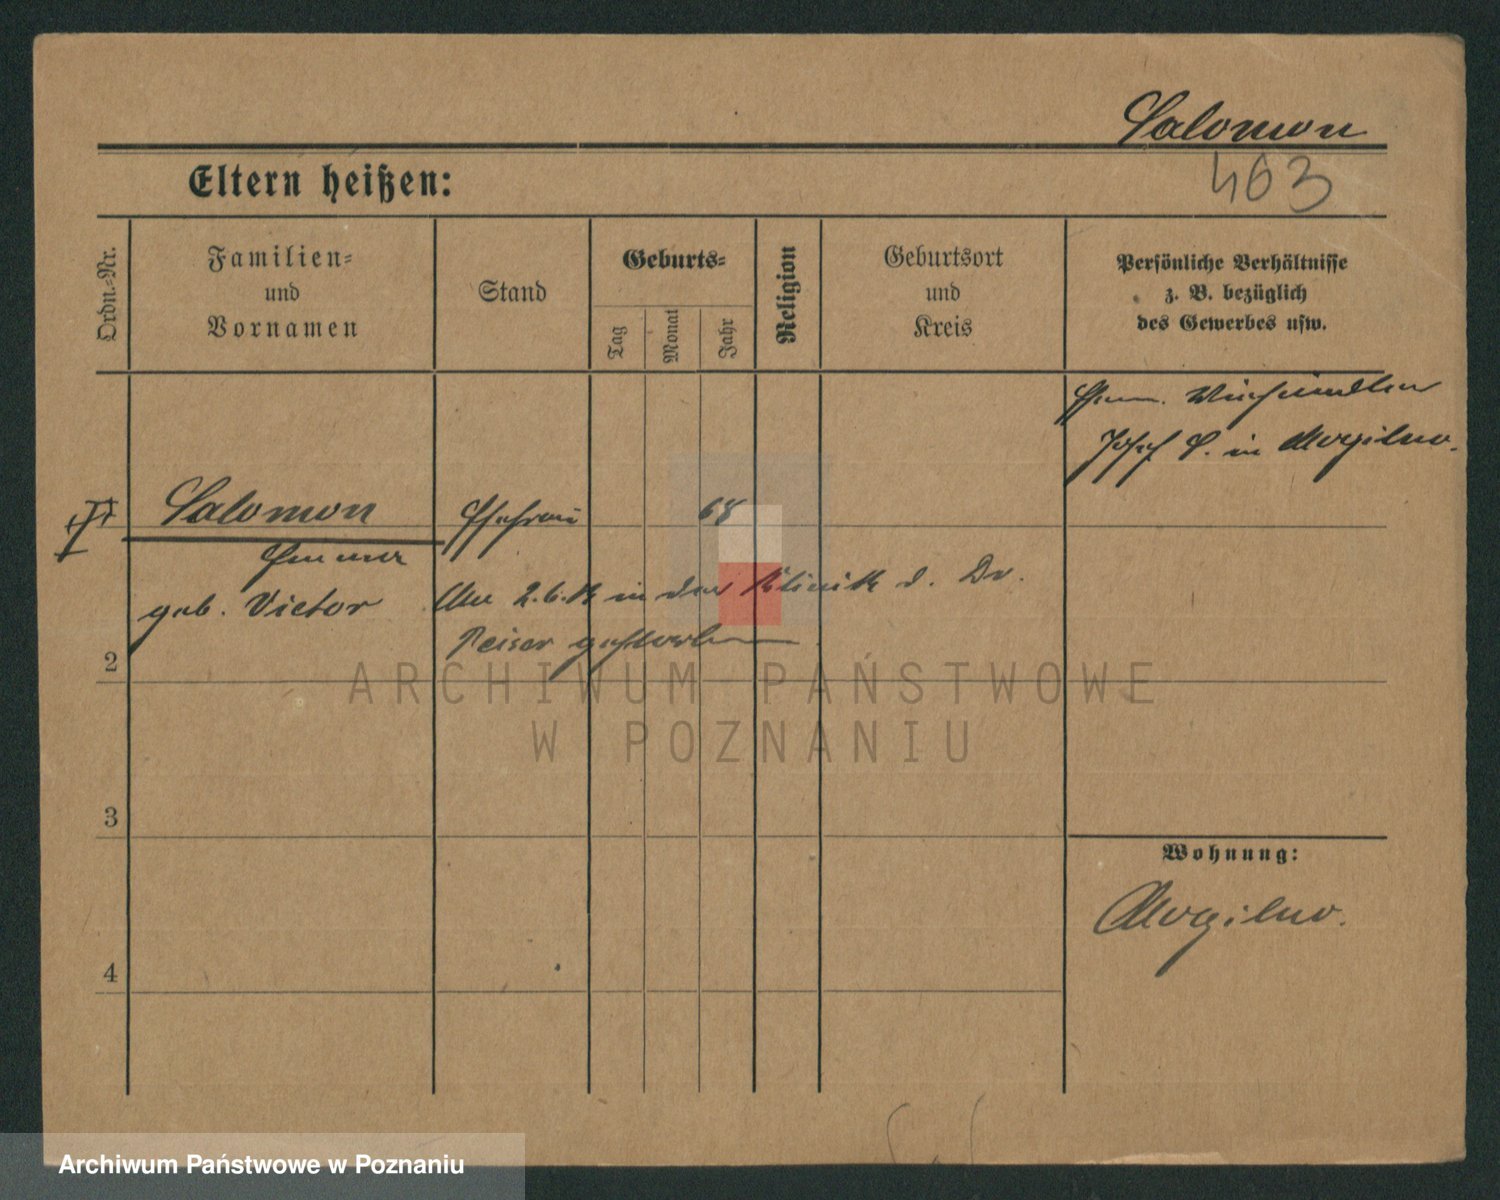 Salomon
463
Eltern heißen:
Ordn.-Nr.
Familien-
und
Vornamen
Stand
Geburts-
Tag
Monat
Jahr
Religion
Geburtsort
und
Kreis
Persönliche Verhältnisse
z. B. bezüglich
des Gewerbes usw.
Ehem. Viehhändler
Josef S. in Mogilno.
Salomon
Ehefrau
68
geb. Victor
Am 2.6.13 in der Klinik d. Dr.
gestorben
2
3
4
Wohnung:
Mogilno.
ARCHIWUM PAŃSTWOWE
W POZNANIU
Archiwum Państwowe w Poznaniu